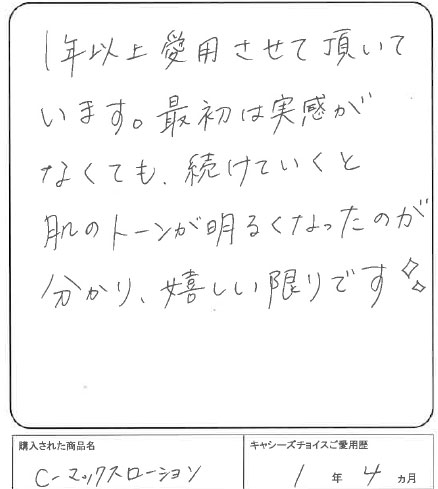 1年以上愛用させて頂いて
います。最初は実感が
なくても、続けていくと
肌のトーンが明るくなったのが
分かり、嬉しい限りです
購入された商品名
C-マックスローション
キャシーズチョイスご愛用歴
1年4ヵ月